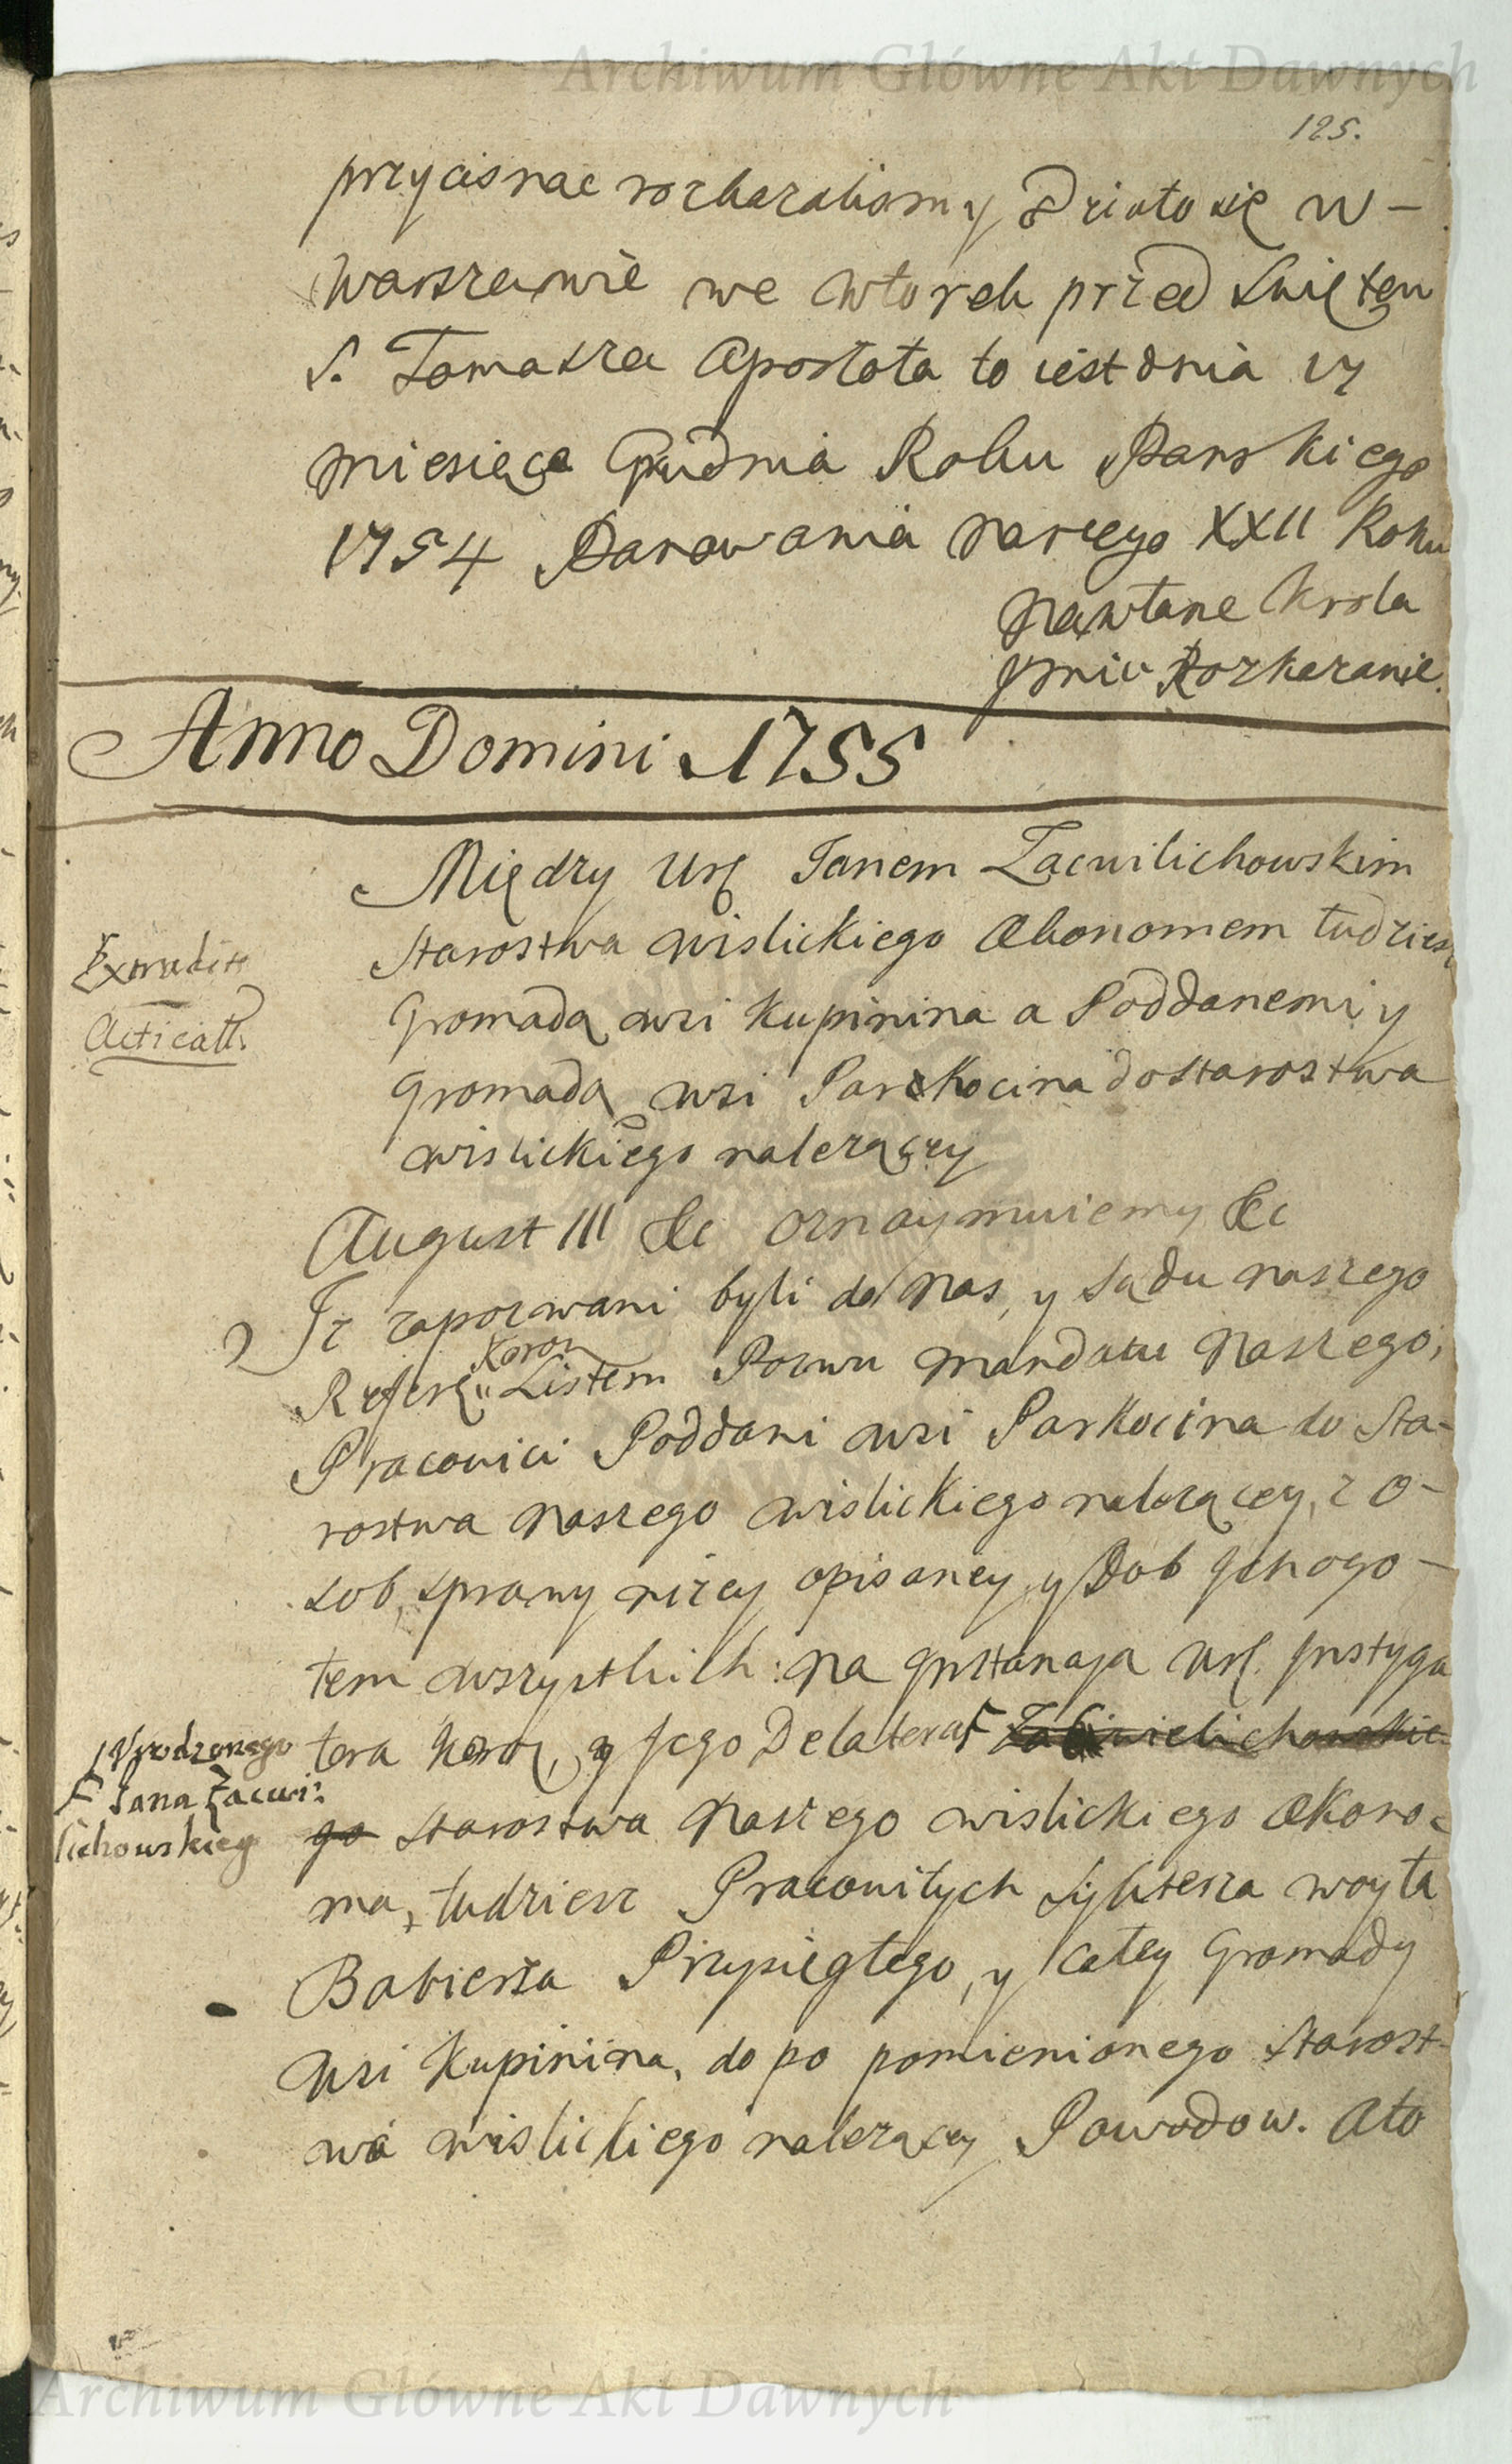 Archiwum Główne Akt Dawnych
125.
przycisnac rozkazalismy Działo się w-
Warszawie we wtorek przed Swiętem
S. Tomasza Apostoła to iest dnia 17
miesięca Grudnia Roku Panskiego
1754 Panowania naszego XXII Roku
Na własne Krola
Jmci Rozkazanie.
Anno Domini 1755
Między Url Janem Zacwilichowskim
Starostwa wislickiego Ekonomem tudziesz
Gromadą wsi Kupinina a Poddanemi y
Gromadą wsi Parchocina do starostwa
wislickiego nalezący
Extradit
Acticatt.
August III &c oznaymuiemy &c
Iz zapozwani byli do Nas, y Sądu naszego
Referen Koron Listem Pozwu Mandatu Naszego,
Pracowici Poddani wsi Parkocina do Sta-
rostwa Naszego wislickiego nalezącey, z o-
sob, sprawy nizey opisaney, y Dob Ich ogo-
tem wszystkich: na Instancją Url. Instyga
tora Koron, y Jego Delatora
Urodzonego
Jana Zacwi:
lichowskieg
go Starostwa Naszego wislickiego Ekono-
ma, tudziesz Pracowitych Sylwestra woyta
Babierza Przysięgłego, y całey Gromady
wsi Kupinina, do po pomienionego Starost-
wa wislickiego nalezącey Powodow. Ato
Archiwum Główne Akt Dawnych